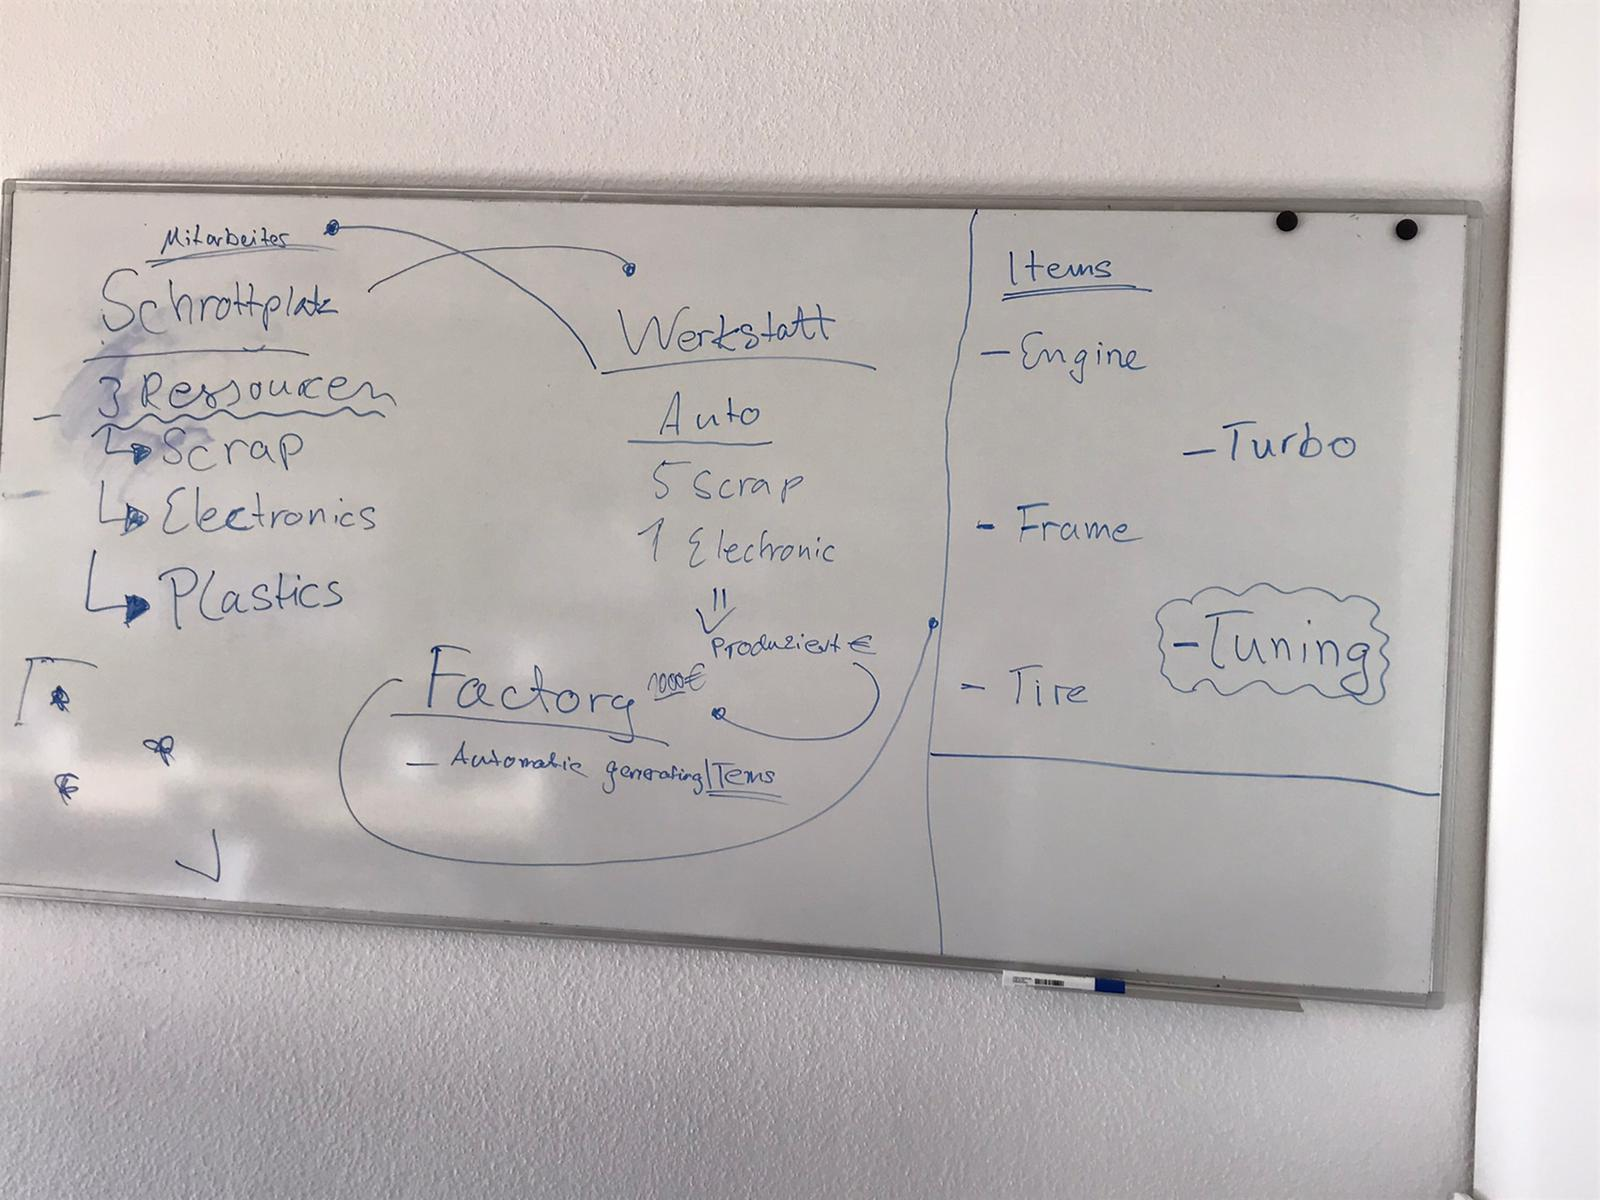 Mitarbeiter
Schrottplatz
3 Ressourcen
Scrap
Electronics
Plastics
Werkstatt
Auto
5 Scrap
1 Electronic
Produziert €
Factory 1000€
- Automatic generating Items
Items
- Engine
- Turbo
- Frame
- Tuning
- Tire